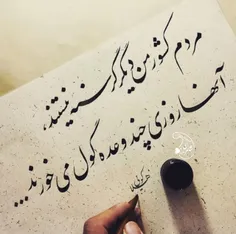 مردم کشور من دیگر گرسنه نیستند،
آنها روزی چند وعده گول می‌خورند...